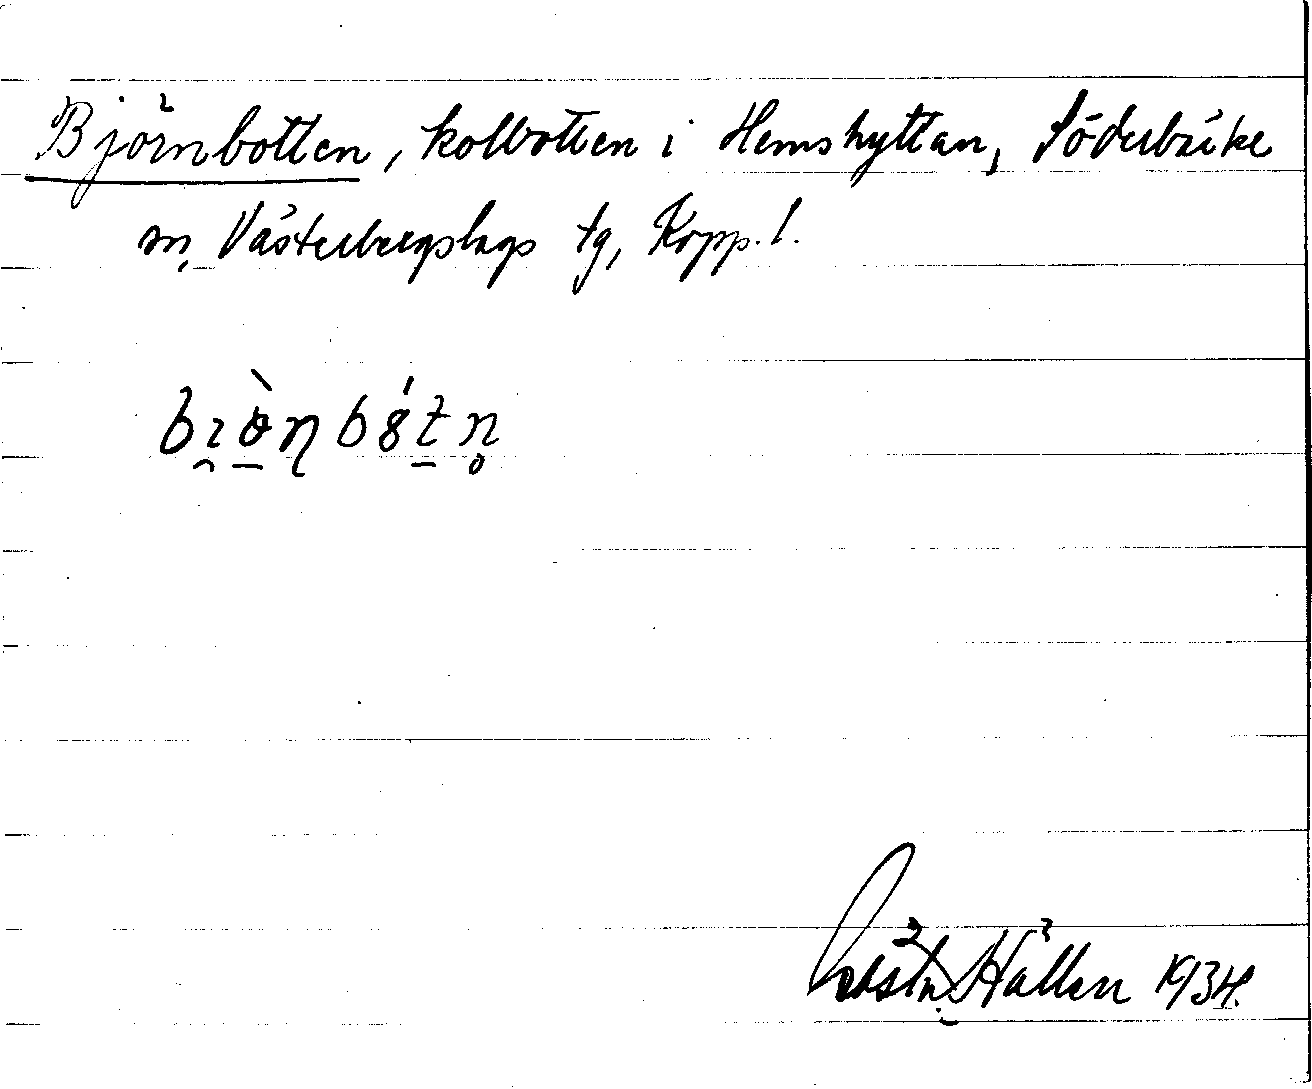 Björnbotten, kolbotten i Hemshyttan, Söderbärke
sn, Västerbergslags tg, Kopp. l.
Hällen 1934.